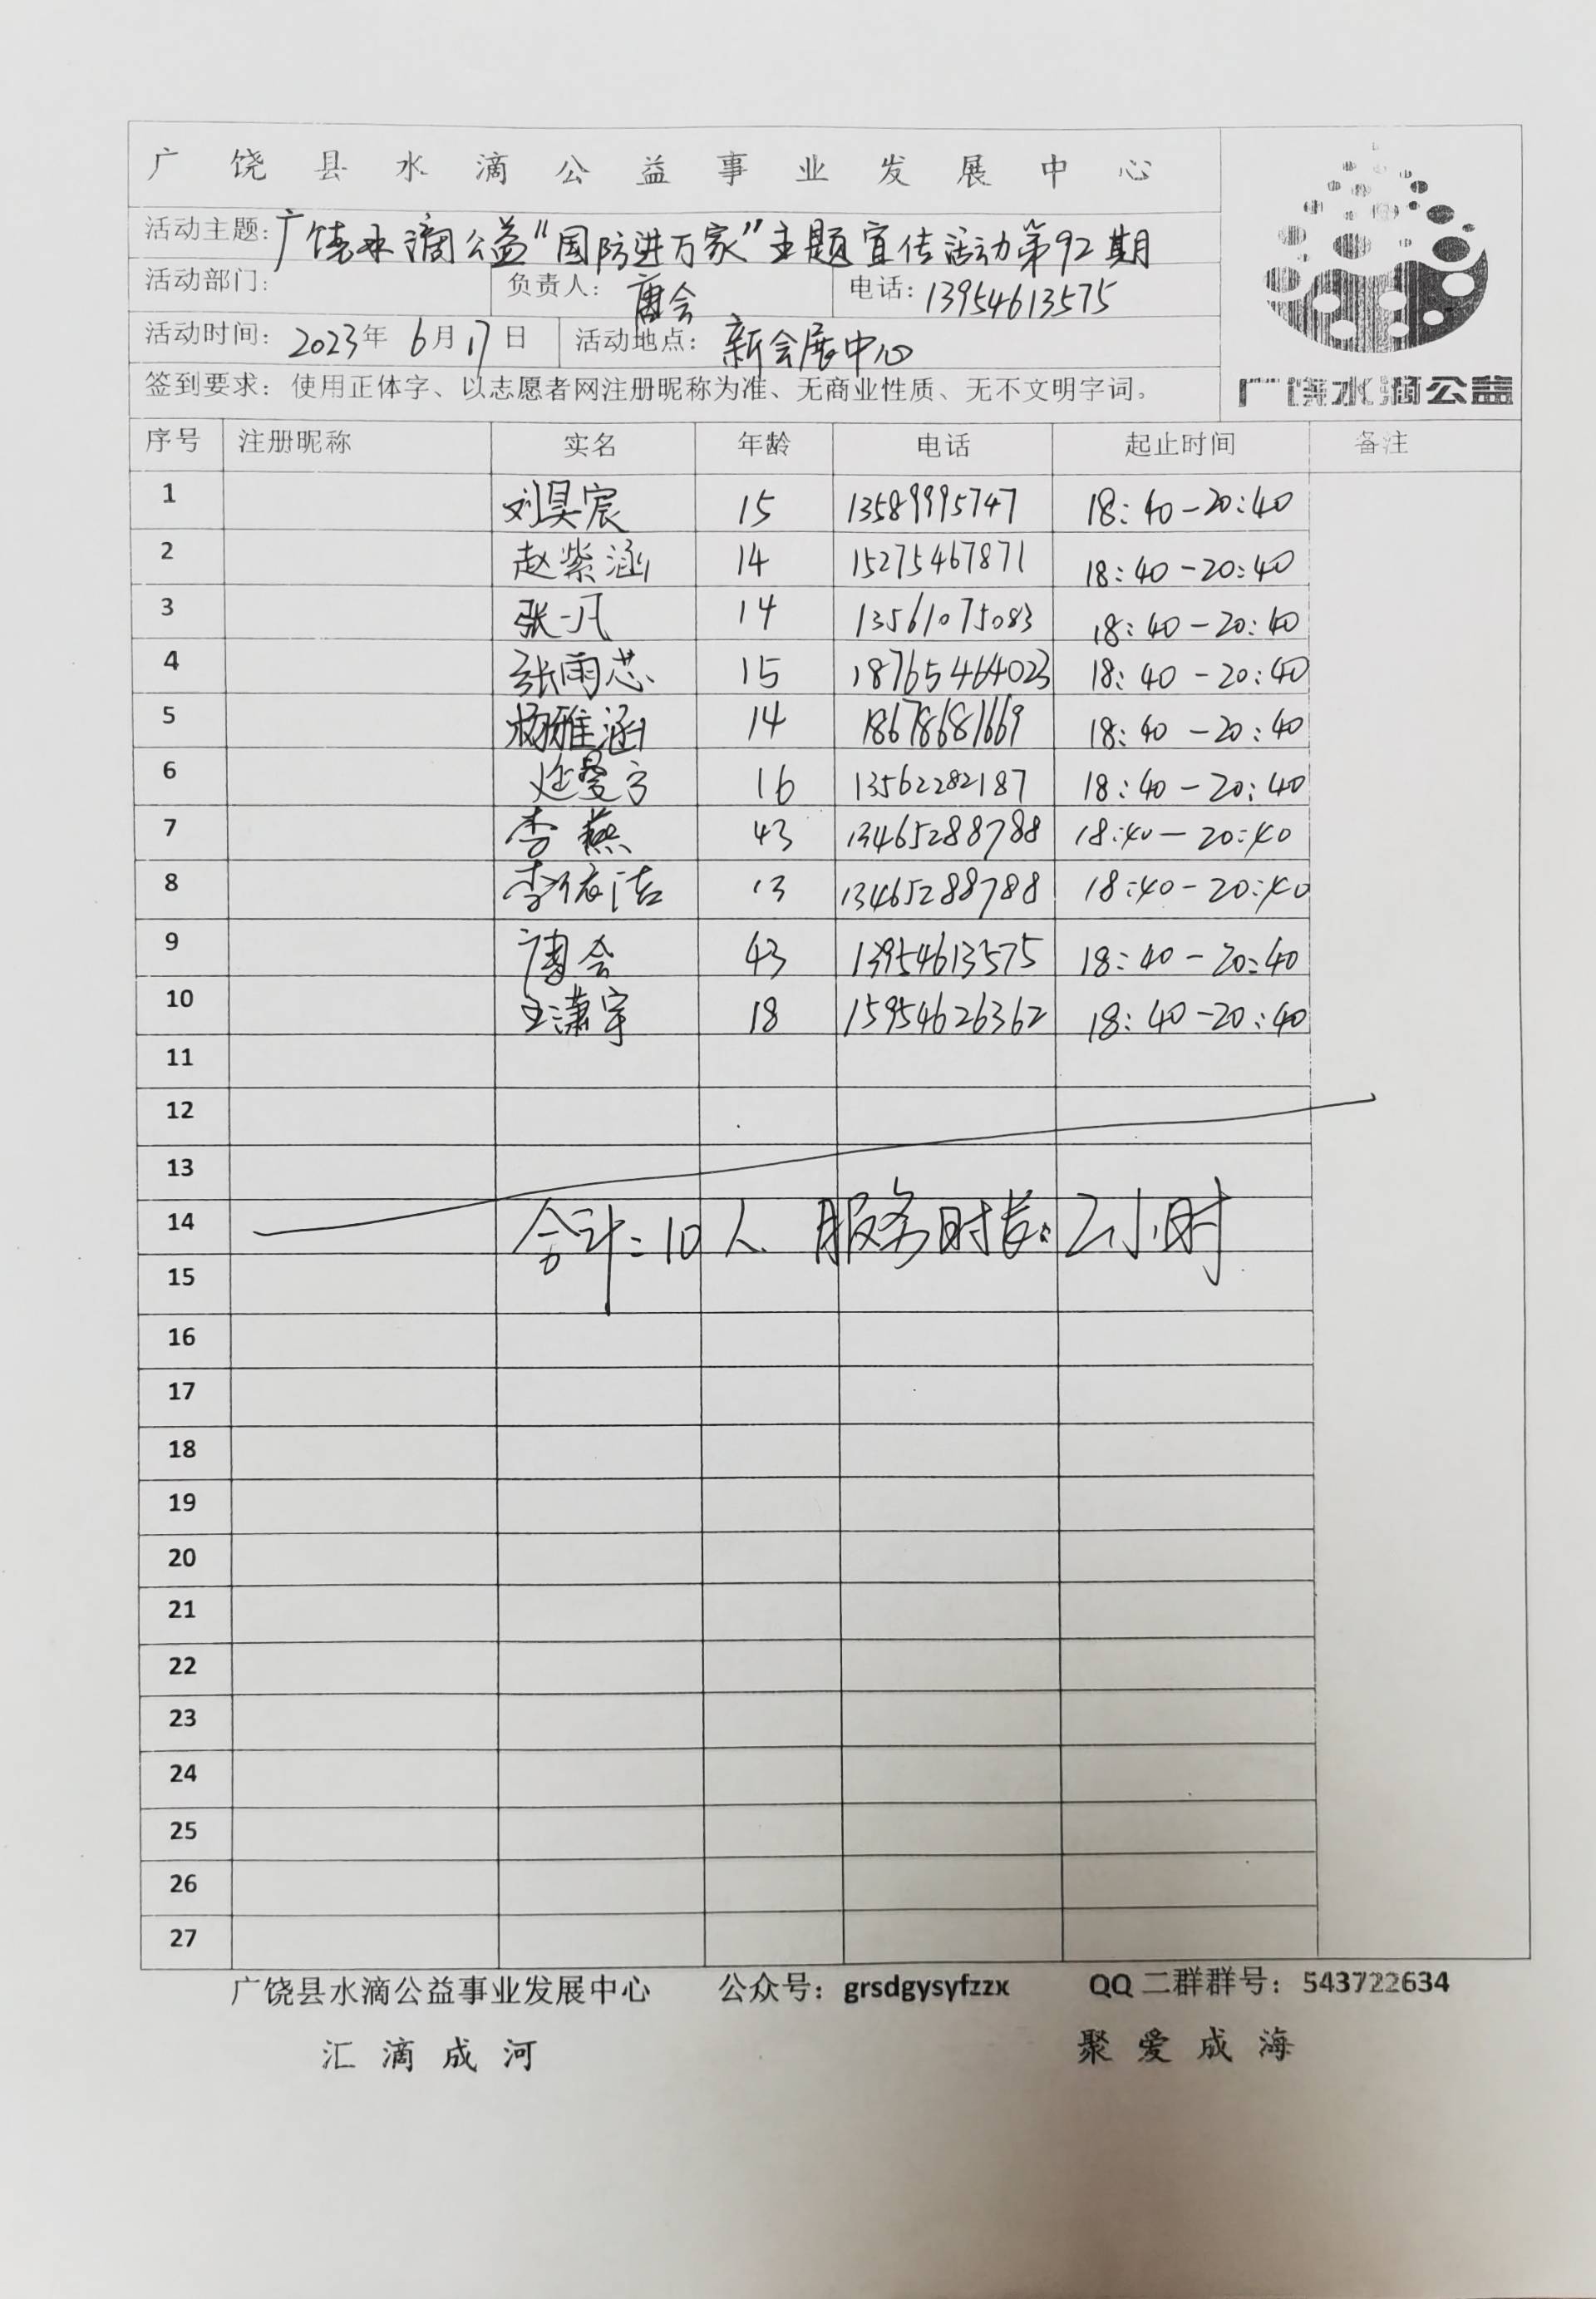 广饶县水滴公益事业发展中心
活动主题：广饶水滴公益“国防进万家”主题宣传活动第92期
活动部门： 负责人：唐会 电话：13954613575
活动时间：2023年 6月17日 活动地点：新会展中心
签到要求：使用正体字、以志愿者网注册昵称为准、无商业性质、无不文明字词。
广饶水滴公益
序号 注册昵称 实名 年龄 电话 起止时间 备注
1 刘昊宸 15 13589995747 18:40-20:40
2 赵紫涵 14 15275467871 18:40-20:40
3 张一凡 14 13561075083 18:40-20:40
4 张雨芯 15 18765464023 18:40-20:40
5 杨雅涵 14 18678681669 18:40-20:40
6 16 13562282187 18:40-20:40
7 李燕 43 13465288788 18:40-20:40
8 李依洁 13 13465288788 18:40-20:40
9 唐会 43 13954613575 18:40-20:40
10 王潇宇 18 15954626362 18:40-20:40
11
12
13
14 合计：10人 服务时长：2小时
15
16
17
18
19
20
21
22
23
24
25
26
27
广饶县水滴公益事业发展中心 公众号：grsdgysyfzzx QQ二群群号：543722634
汇滴成河 聚爱成海